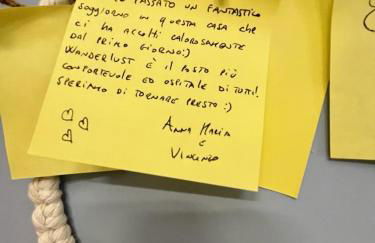 PASSATO UN FANTASTICO
SOGGIORNO IN QUESTA CASA CHE
CI HA ACCOLTI CALOROSAMENTE
DAL PRIMO GIORNO :)
WANDERLUST È IL POSTO PIÙ
CONFORTEVOLE ED OSPITALE DI TUTTI!
SPERIAMO DI TORNARE PRESTO :)
ANNA MARIA
E
VINCENZO